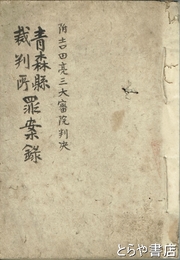 附吉田亮三大審院判决
青森縣
裁判所
罪案錄
とらや書店